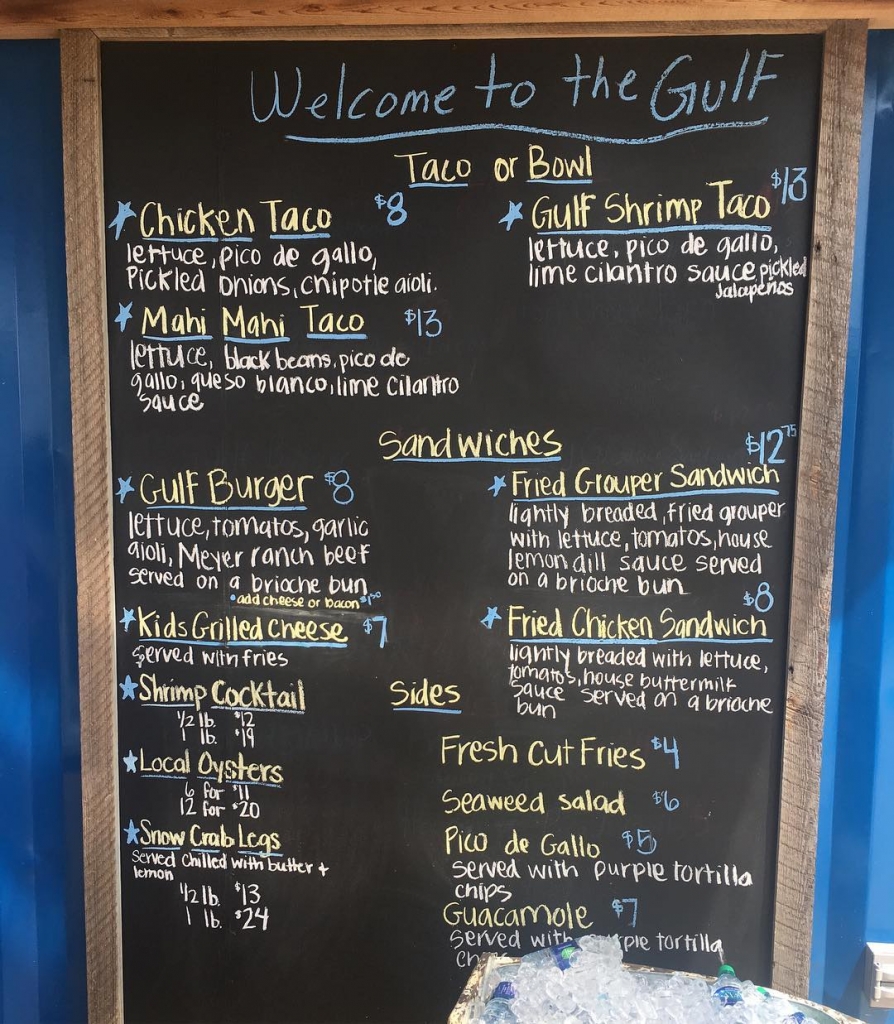 Welcome to the Gulf
Taco or Bowl
Chicken Taco $8
lettuce, pico de gallo,
Pickled onions, chipotle aioli.
Mahi Mahi Taco $13
lettuce, black beans, pico de
gallo, queso blanco, lime cilantro
sauce
Gulf Shrimp Taco $13
lettuce, pico de gallo,
lime cilantro sauce pickled
Jalapeños
Sandwiches
Gulf Burger $8
lettuce, tomatos, garlic
aioli, Meyer ranch beef
served on a brioche bun
*add cheese or bacon $1.50
Kids Grilled Cheese $7
served with fries
Fried Grouper Sandwich $12.75
lightly breaded, fried grouper
with lettuce, tomatos, house
lemon dill sauce served
on a brioche bun
Fried Chicken Sandwich $8
lightly breaded with lettuce,
tomatos, house buttermilk
sauce served on a brioche
bun
Shrimp Cocktail
1/2 lb. $12
1 lb. $19
Local Oysters
6 for $11
12 for $20
Snow Crab Legs
Served Chilled with butter +
lemon
1/2 lb. $13
1 lb. $24
Sides
Fresh Cut Fries $4
Seaweed salad $6
Pico de Gallo $5
served with purple tortilla
chips
Guacamole $7
served with tortilla